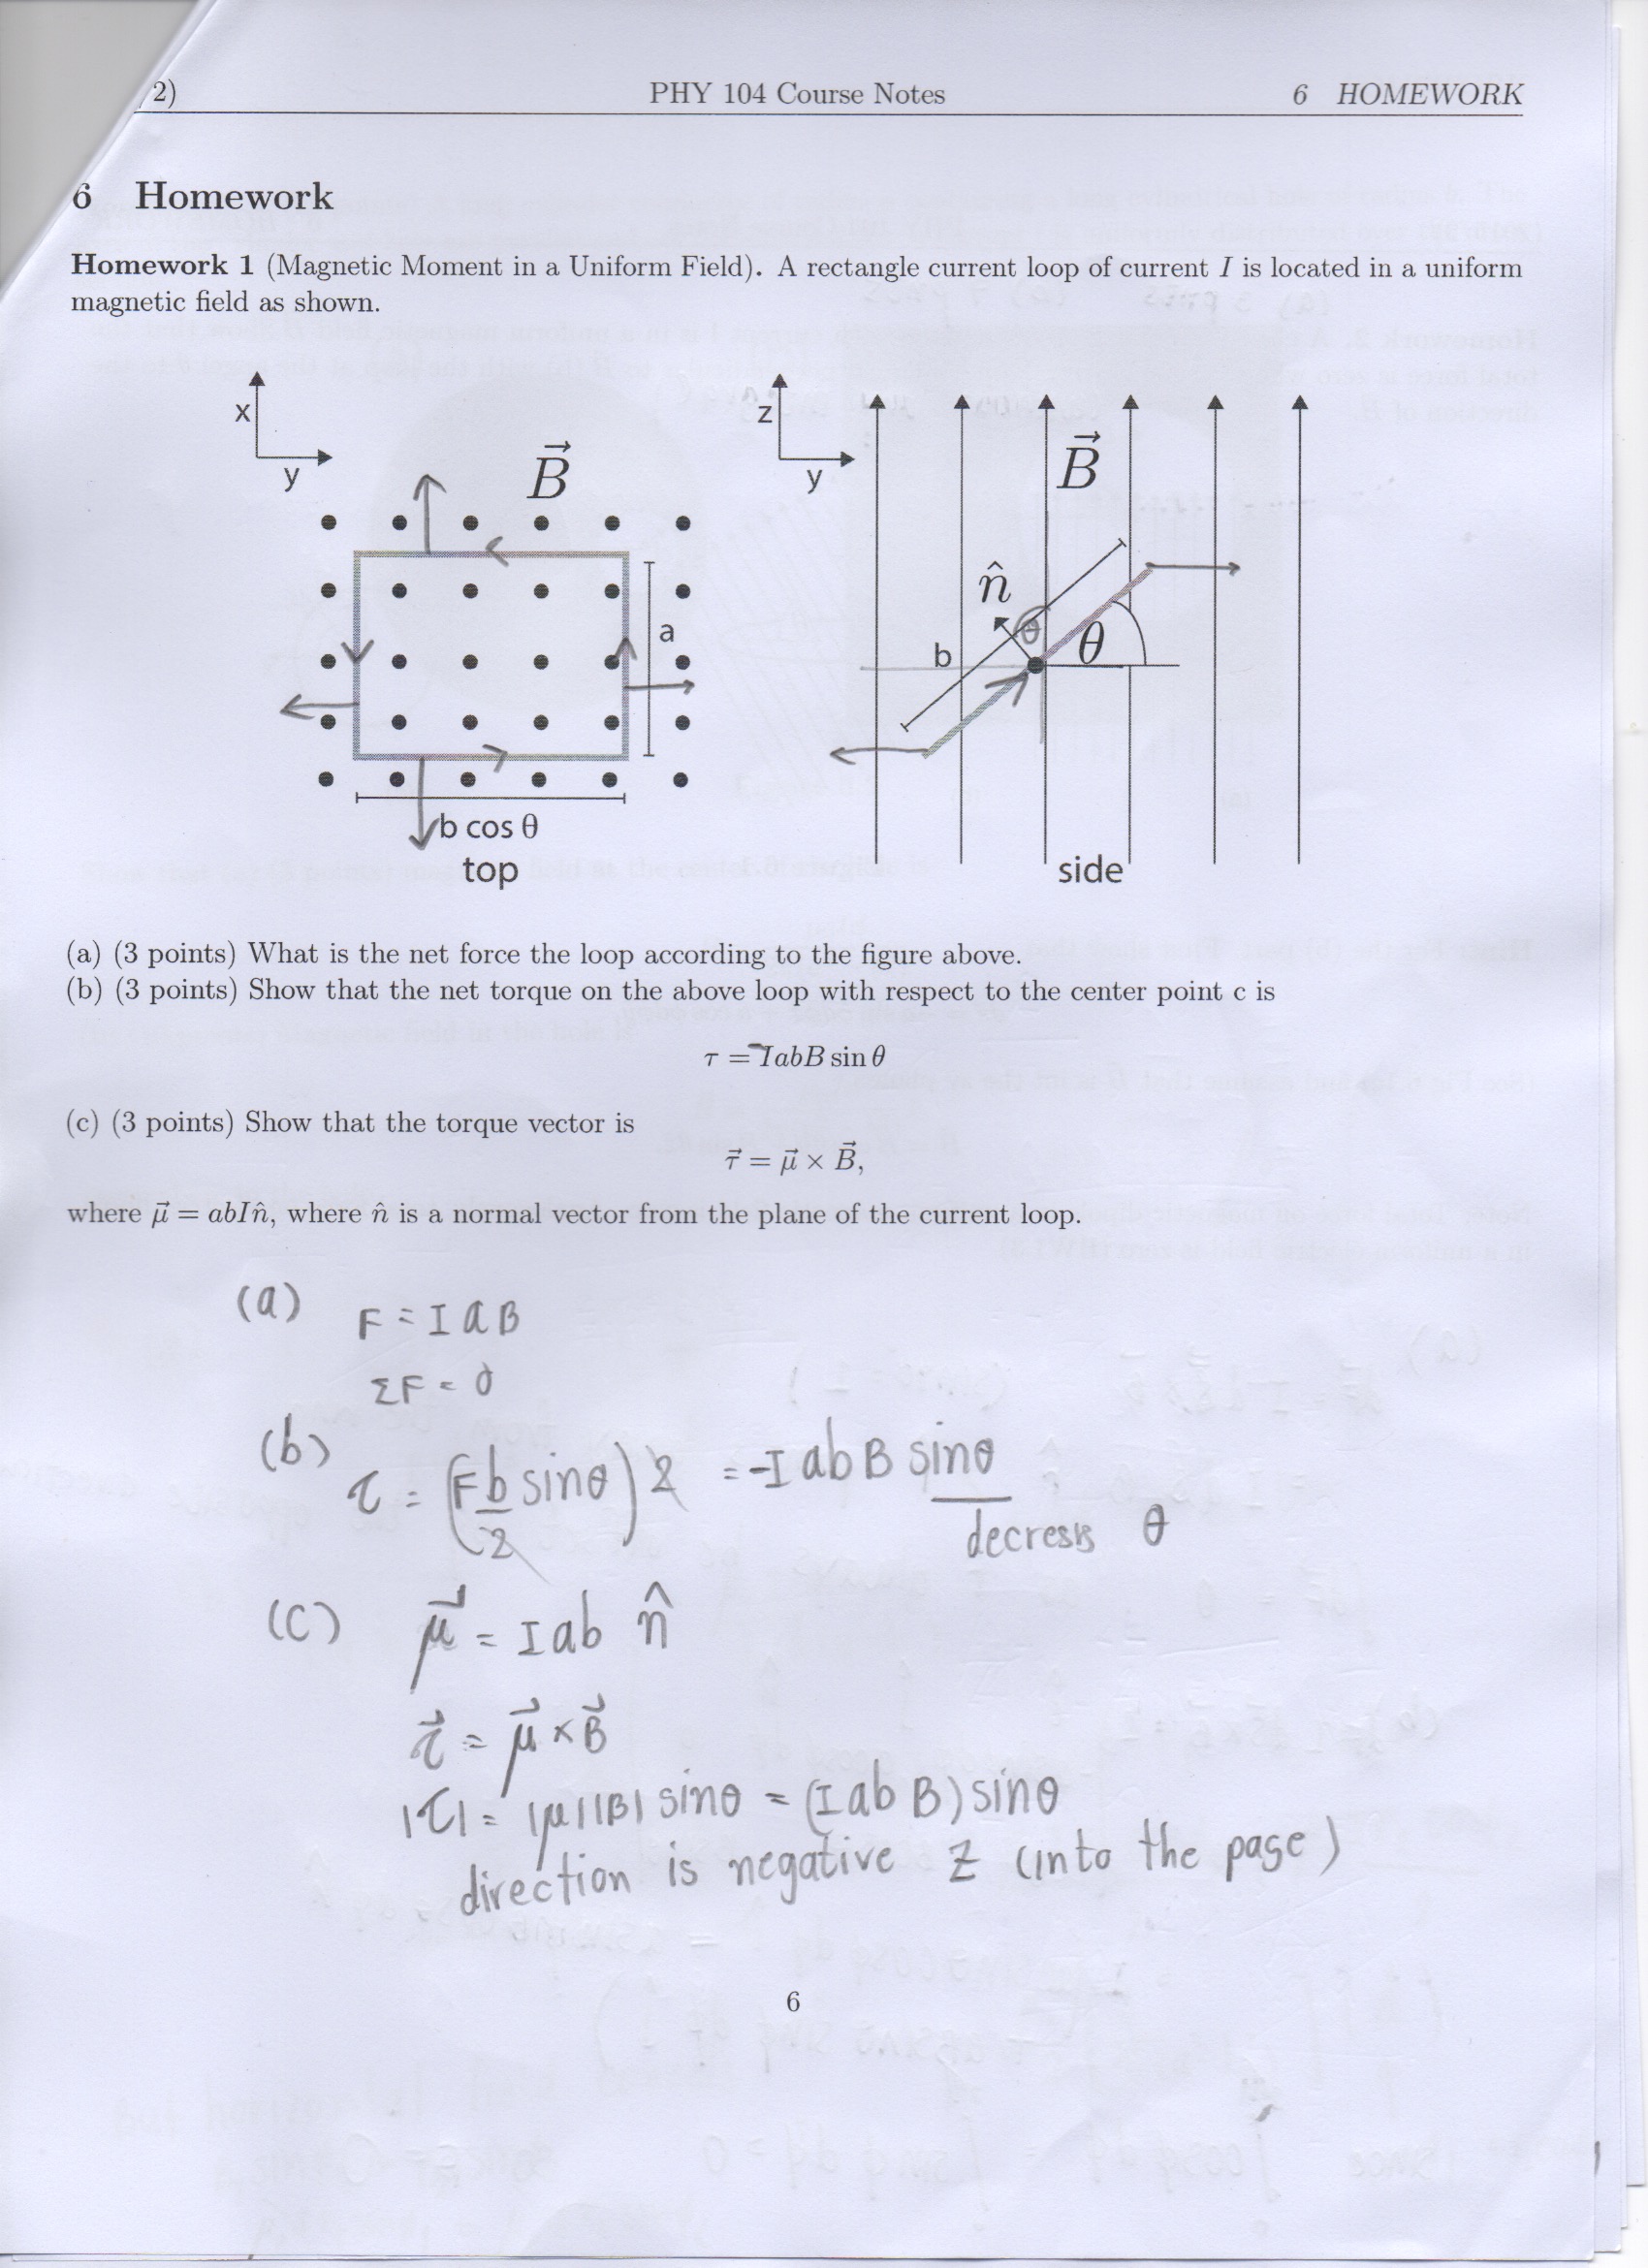 2) PHY 104 Course Notes 6 HOMEWORK
6 Homework
Homework 1 (Magnetic Moment in a Uniform Field). A rectangle current loop of current I is located in a uniform
magnetic field as shown.
x
y
B⃗
a
b cos θ
top
z
y
B⃗
n̂
θ
θ
b
side
(a) (3 points) What is the net force the loop according to the figure above.
(b) (3 points) Show that the net torque on the above loop with respect to the center point c is
τ = -IabB sin θ
(c) (3 points) Show that the torque vector is
τ⃗ = μ⃗ × B⃗,
where μ⃗ = abIn̂, where n̂ is a normal vector from the plane of the current loop.
(a) F = I a B
ΣF = 0
(b) τ = (F b/2 sinθ) 2 = -I ab B sinθ
decress θ
(c) μ⃗ = I ab n̂
τ⃗ = μ⃗ × B⃗
|τ| = |μ||B| sinθ = (I ab B) sinθ
direction is negative z (into the page)
6